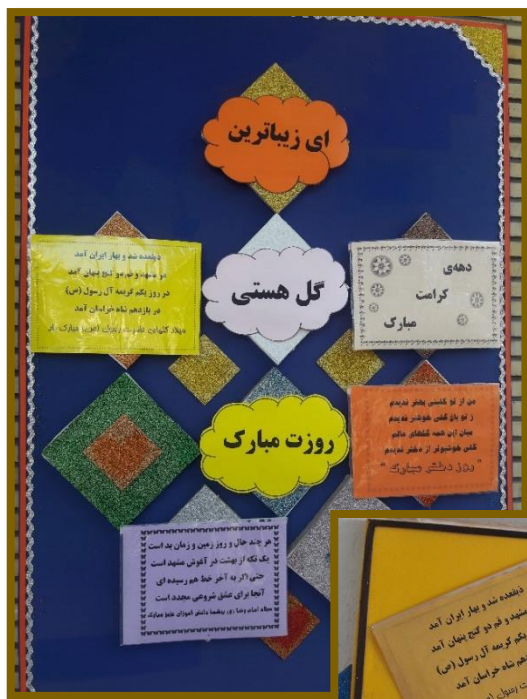 ای زیباترین
گل هستی
روزت مبارک
دهه‌ی
کرامت
مبارک
ذیقعده شد و بهار ایران آمد
در مشهد و قم دو گنج پنهان آمد
در روز یکم کریمه آل رسول (ص)
در یازدهم شاه خراسان آمد
مبارک باد
من از تو گلشنی بهتر ندیدم
ز تو باغ گلی خوشتر ندیدم
میان این همه گلهای عالم
گلی خوشبوتر از دختر ندیدم
"روز دختر مبارک"
هر چند حال و روز زمین و زمان بد است
یک تکه از بهشت در آغوش مشهد است
حتی اگر به آخر خط هم رسیده ای
آنجا برای عشق شروعی مجدد است
میلاد امام رضا روی دانش آموزان عزیز مبارک
ذیقعده شد و بهار ایران آمد
مشهد و قم دو گنج پنهان آمد
یکم کریمه آل رسول (ص)
شاه خراسان آمد